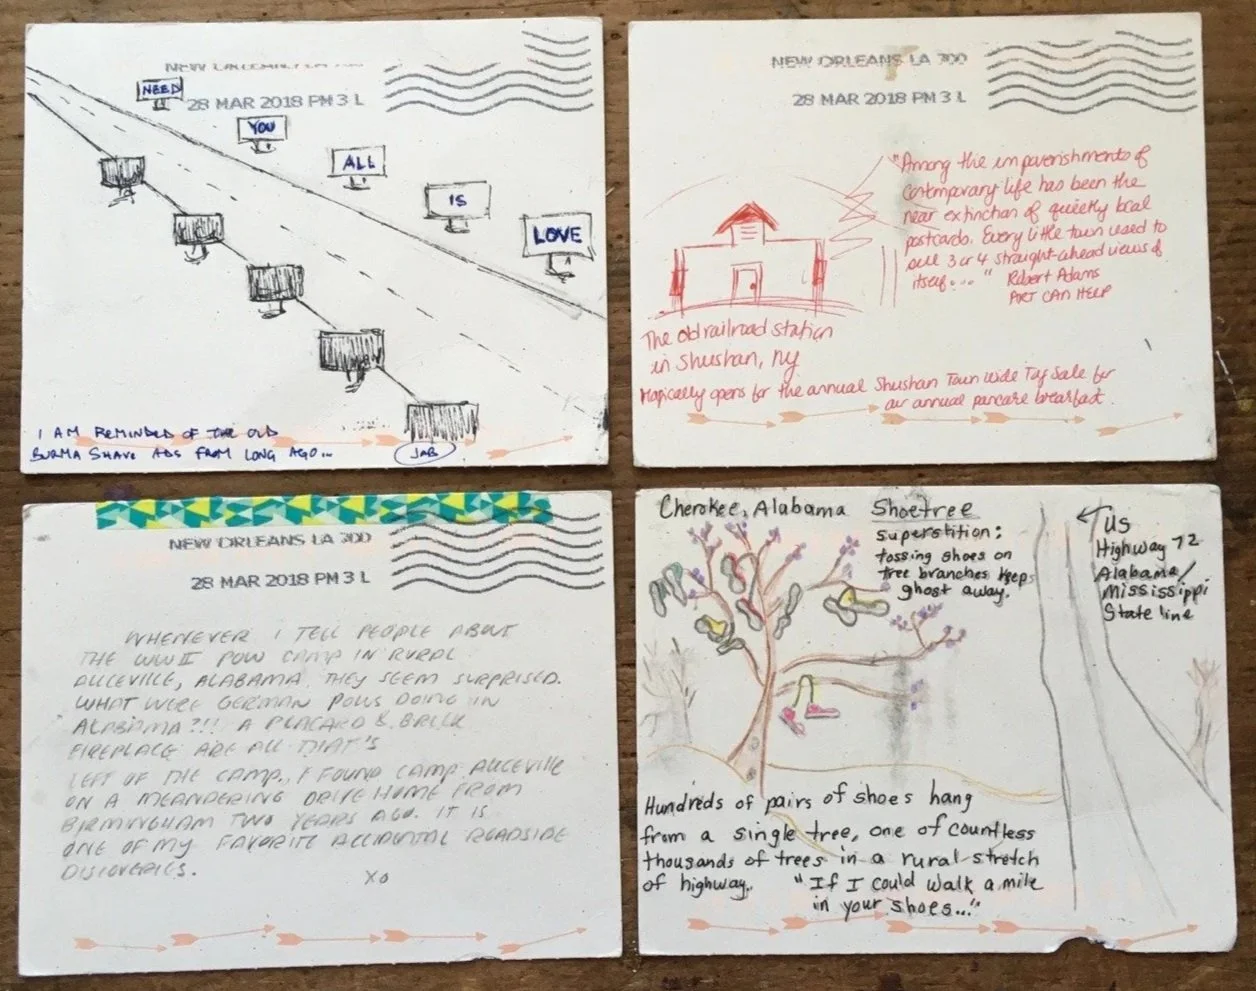 NEW ORLEANS LA 700
28 MAR 2018 PM 3 L
NEED
YOU
ALL
IS
LOVE
I AM REMINDED OF THE OLD
BURMA SHAVE ADS FROM LONG AGO...
JOB
NEW ORLEANS LA 700
28 MAR 2018 PM 3 L
"Among the impoverishments of
contemporary life has been the
near extinction of quietly local
postcards. Every little town used to
sell 3 or 4 straight-ahead views of
itself..." Robert Adams
ART CAN HELP
The old railroad station
in Shushan, NY
Magically opens for the annual Shushan Town Wide Tag Sale for
an annual pancake breakfast.
NEW ORLEANS LA 700
28 MAR 2018 PM 3 L
WHENEVER I TELL PEOPLE ABOUT
THE WWII POW CAMP IN RURAL
ALICEVILLE, ALABAMA, THEY SEEM SURPRISED.
WHAT WERE GERMAN POWS DOING IN
ALABAMA?!! A PLACARD & BRICK
FIREPLACE ARE ALL THAT'S
LEFT OF THE CAMP. I FOUND CAMP ALICEVILLE
ON A MEANDERING DRIVE HOME FROM
BIRMINGHAM TWO YEARS AGO. IT IS
ONE OF MY FAVORITE ACCIDENTAL ROADSIDE
DISCOVERIES.
XO
Cherokee, Alabama Shoetree
superstition:
tossing shoes on
tree branches keeps
ghost away.
US
Highway 72
Alabama/
Mississippi
State line
Hundreds of pairs of shoes hang
from a single tree, one of countless
thousands of trees in a rural stretch
of highway. "If I could walk a mile
in your shoes..."